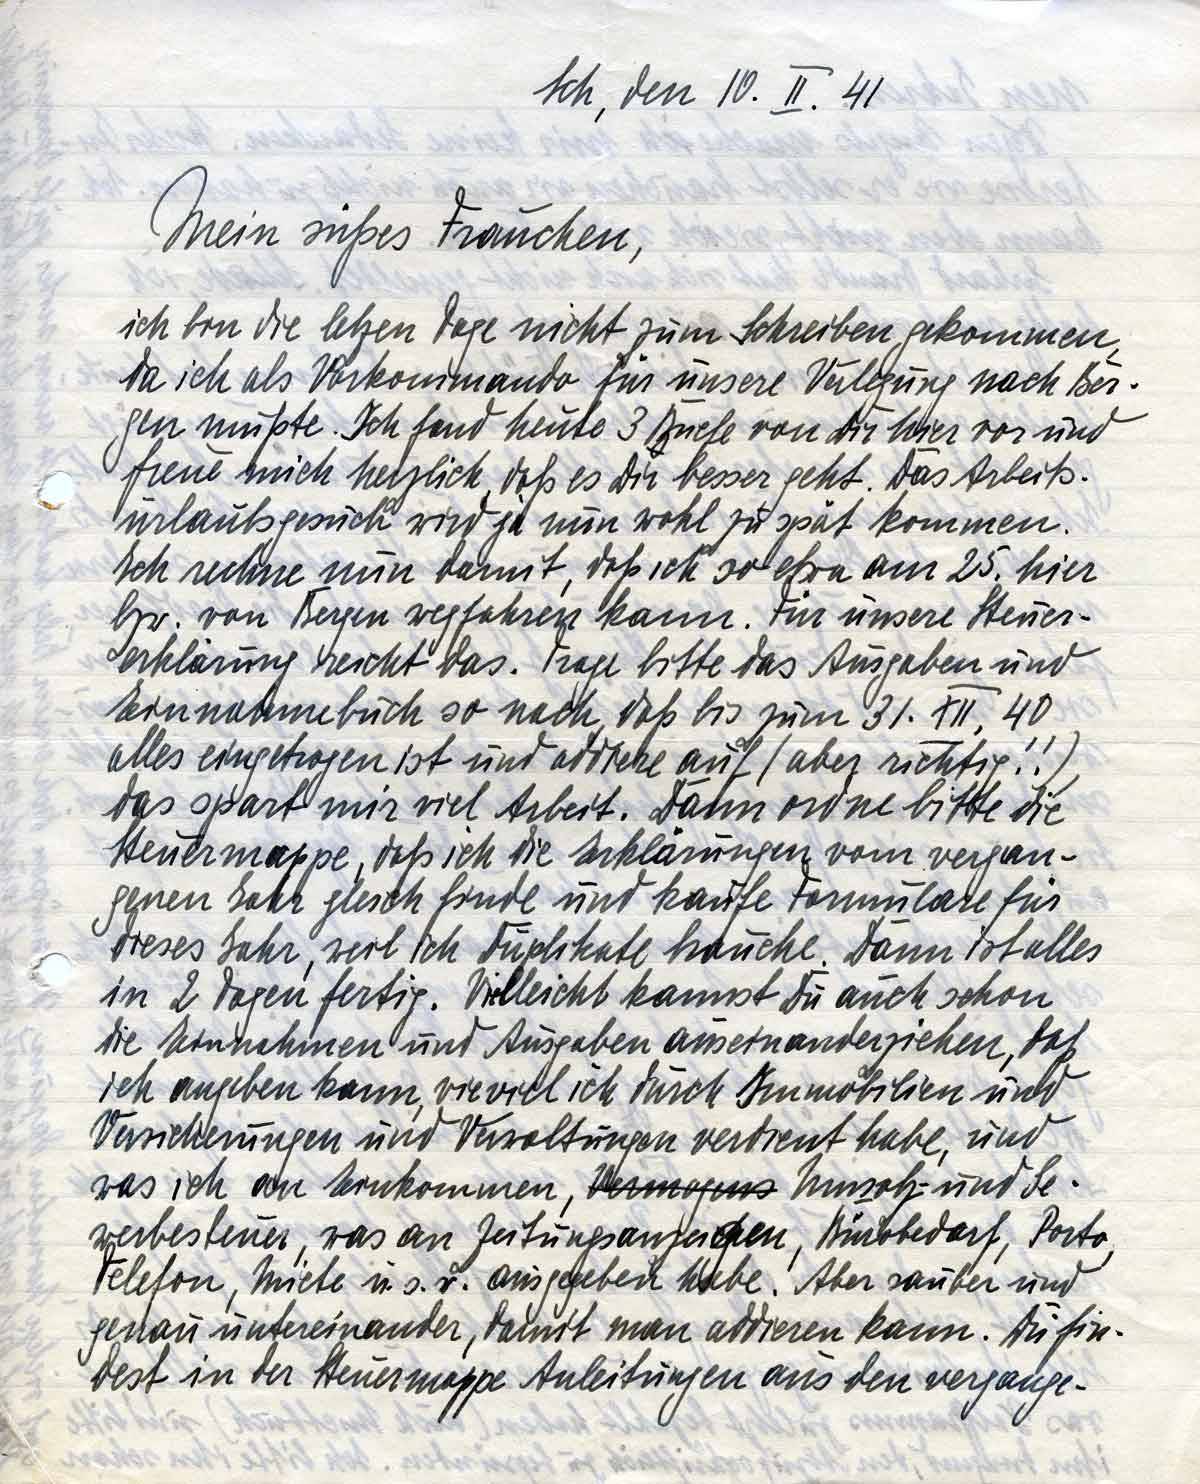 Sch, den 10. II. 41
Mein süßes Frauchen,
ich bin die letzen Tage nicht zum Schreiben gekommen,
da ich als Vorkommando für unsere Verlegung nach Ber-
gen mußte. Ich fand heute 3 Briefe von Dir hier vor und
freue mich herzlich, daß es Dir besser geht. Das Arbeits-
urlaubsgesuch wird ja nun wohl zu spät kommen.
Ich rechne nun damit, daß ich so etwa am 25. hier
bzw. von Bergen wegfahren kann. Für unsere Steuer-
erklärung reicht das. Trage bitte das Ausgaben und
Einnahmebuch so nach, daß bis zum 31. XII. 40
alles eingetragen ist und addiere auf (aber richtig!!),
das spart mir viel Arbeit. Dann ordne bitte die
Steuermappe, daß ich die Erklärungen vom vergan-
genen Jahr gleich finde und kaufe Formulare für
dieses Jahr, weil ich Duplikate brauche. Dann ist alles
in 2 Tagen fertig. Vielleicht kannst Du auch schon
die Einnahmen und Ausgaben auseinanderziehen, daß
ich angeben kann, wieviel ich durch Immobilien und
Versicherungen und Verwaltungen verdient habe, und
was ich an Einkommen, Vermögens Umsatz- und Ge-
werbesteuer, was an Zeitungsanzeigen, Bürobedarf, Porto,
Telefon, Miete u. s. w. ausgegeben habe. Aber sauber und
genau untereinander, damit man addieren kann. Du fin-
dest in der Steuermappe Anleitungen aus den vergange-